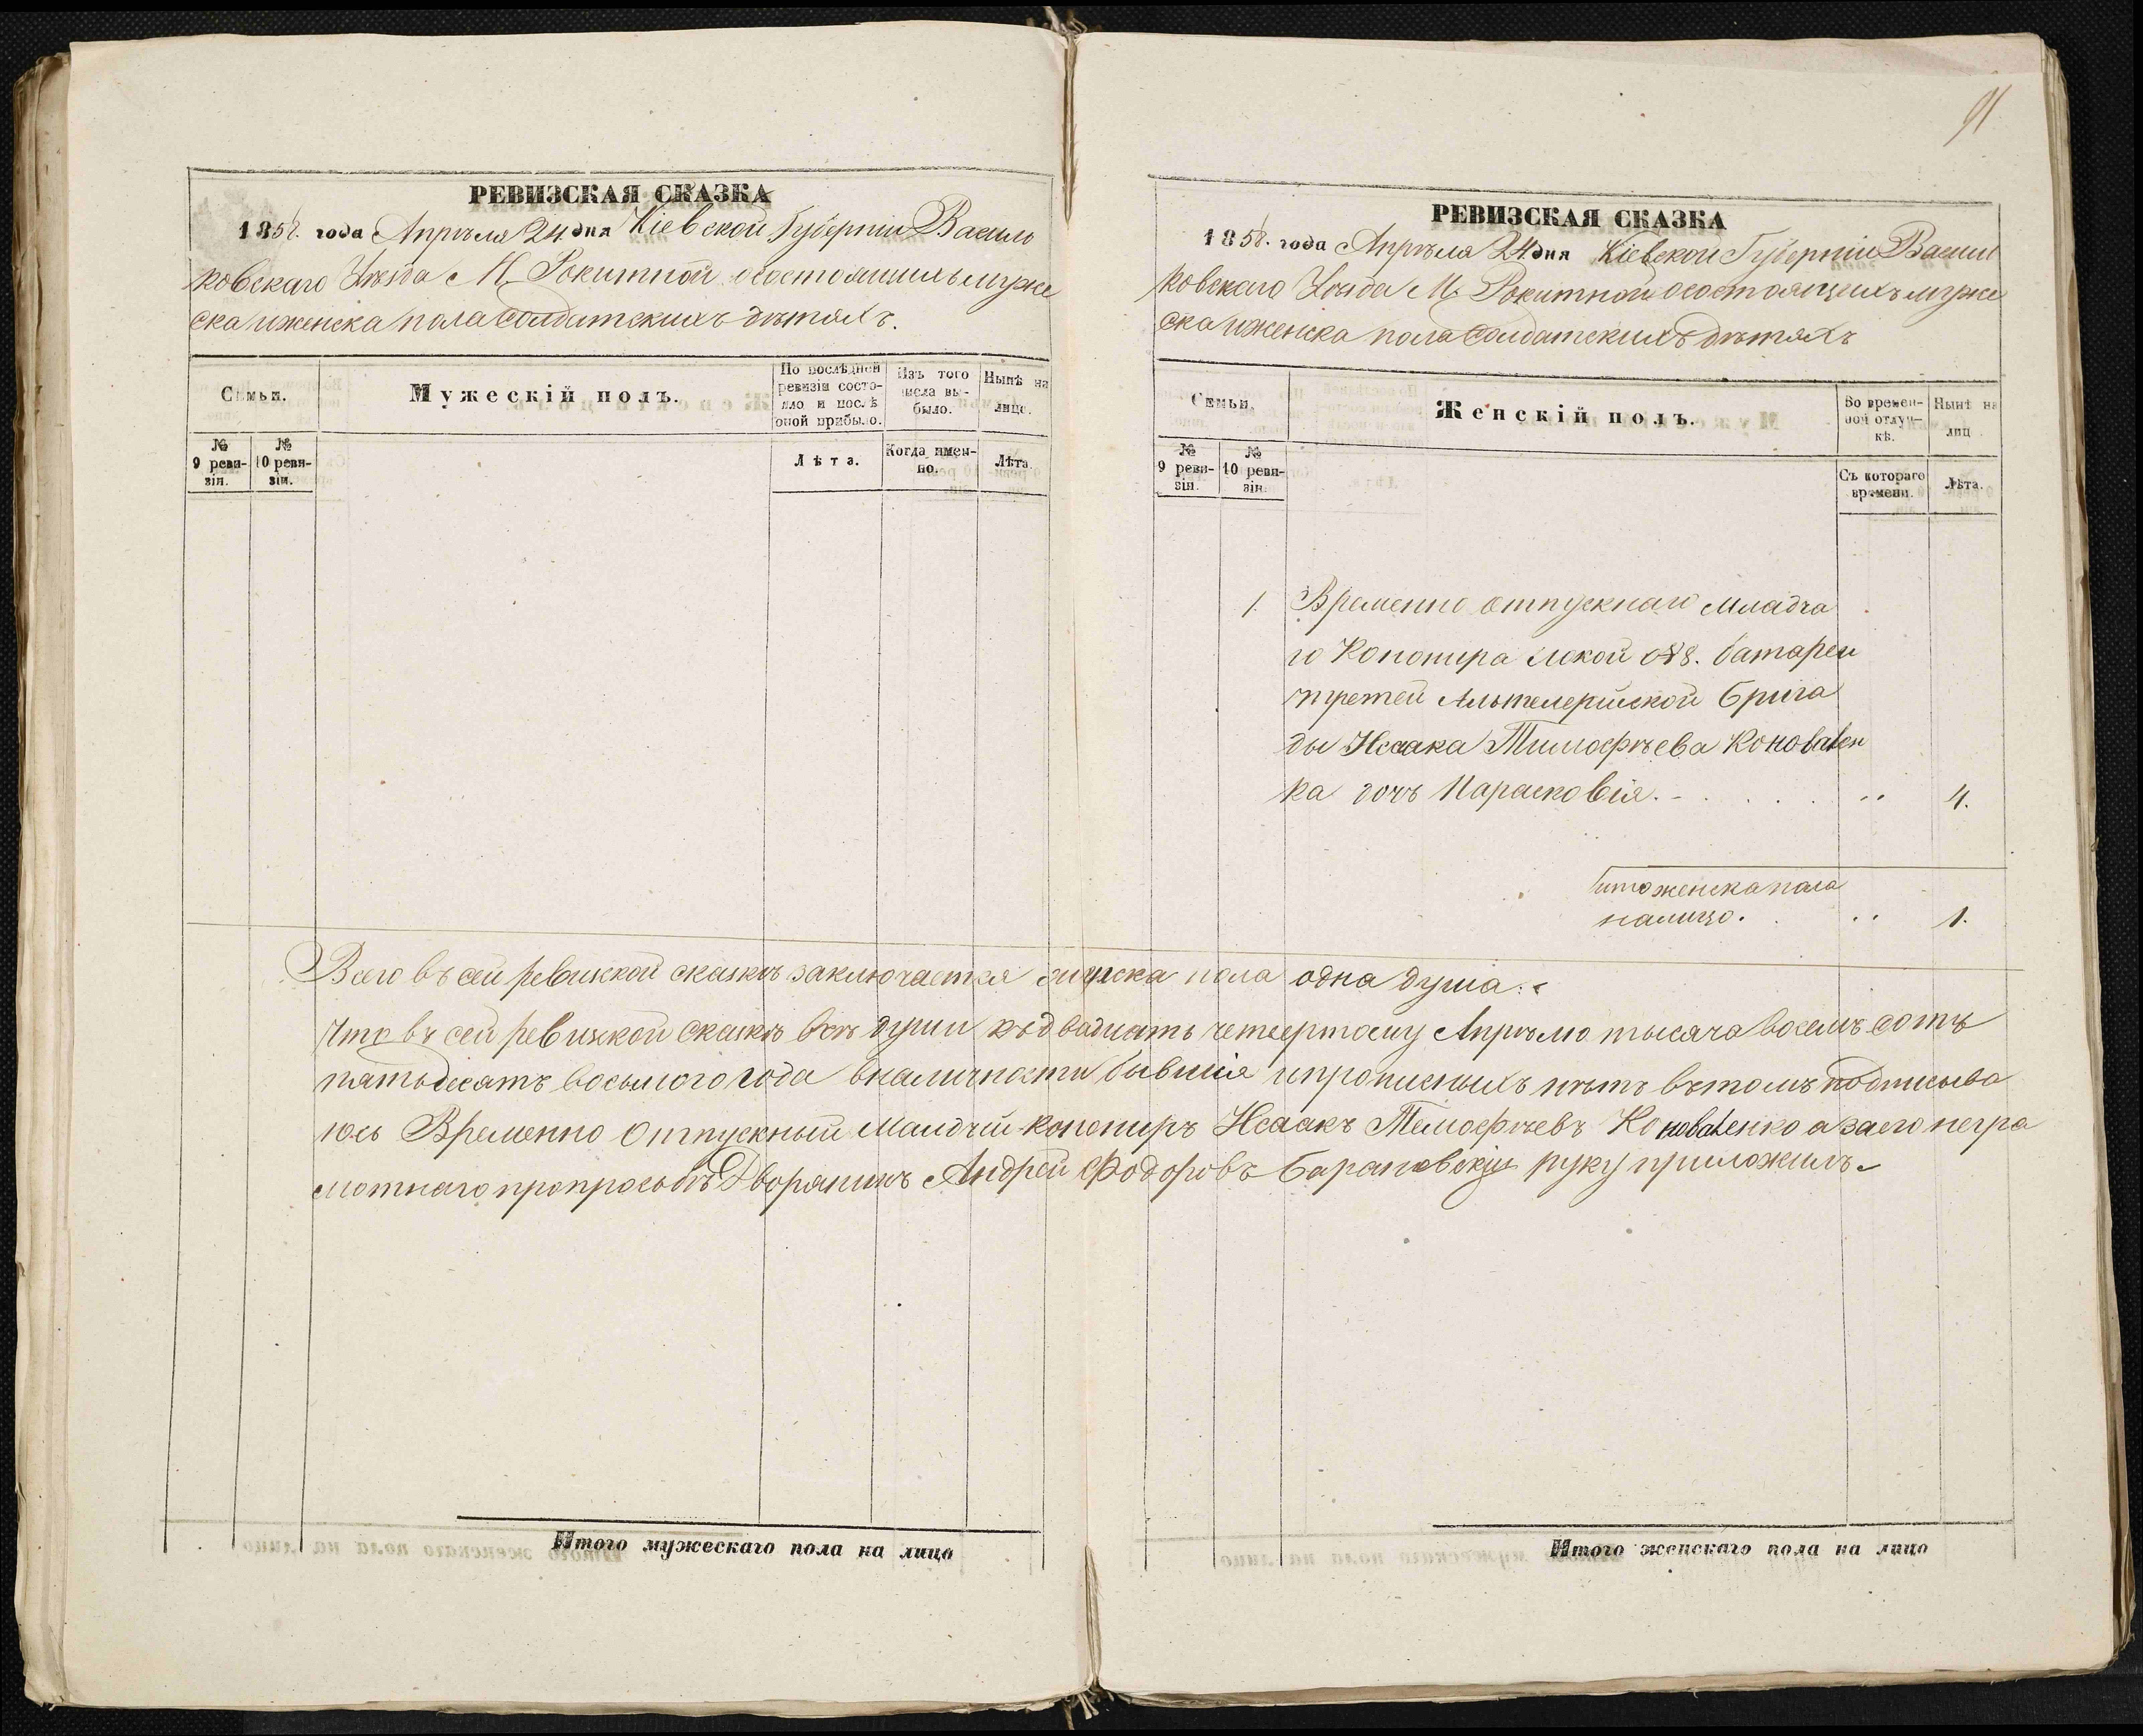 91
РЕВИЗСКАЯ СКАЗКА
1858. года Апрѣля 24 дня Кіевской Губерніи Василь
ковскаго Уѣзда М. Рокитной осостоящихъ муже
ска иженска пола Солдатскихъ дѣтяхъ.
Семьи.
Мужескій полъ.
По послѣдней ревизіи состояло и послѣ оной прибыло.
Изъ того числа выбыло.
Нынѣ на лицо.
№ 9 ревизіи.
№ 10 ревизіи.
Лѣта.
Когда именно.
Лѣта.
РЕВИЗСКАЯ СКАЗКА
1858. года Апрѣля 24 дня Кіевской Губерніи Васил
ковскаго Уѣзда М. Рокитной осостоящихъ муже
ска иженска пола Солдатскихъ дѣтяхъ
Семьи.
Женскій полъ.
Во временной отлучкѣ.
Нынѣ на лиц
№ 9 ревизіи.
№ 10 ревизіи.
Съ котораго времени.
Лѣта.
1. Временно отпускнаго младча
го Кононира батареи
третей Альтелерійской Брига
ды Исаака Тимофѣева Коноваlен
ка дочь Парасковія. 4.
итоженска пола
налицо. 1.
Всего въ сей ревизкой сказкѣ заключается пола одна душа.
Что въ сей ревизкой сказкѣ всѣ души къдвадцать четвертому Апрѣлю тысяча восемъ сотъ
пятьдесятъ восьмого года вналичности бывшія ипрописныхъ нѣтъ вътомъ подписыва
юсь Временно Отпускный Младчій конониръ Исаакъ Темофѣевъ Коноваlенко а заего негра
мотнаго Дворянинъ Андрей Фодоровъ Барановскій руку приложилъ
Итого мужескаго пола на лицо
Итого женскаго пола на лицо